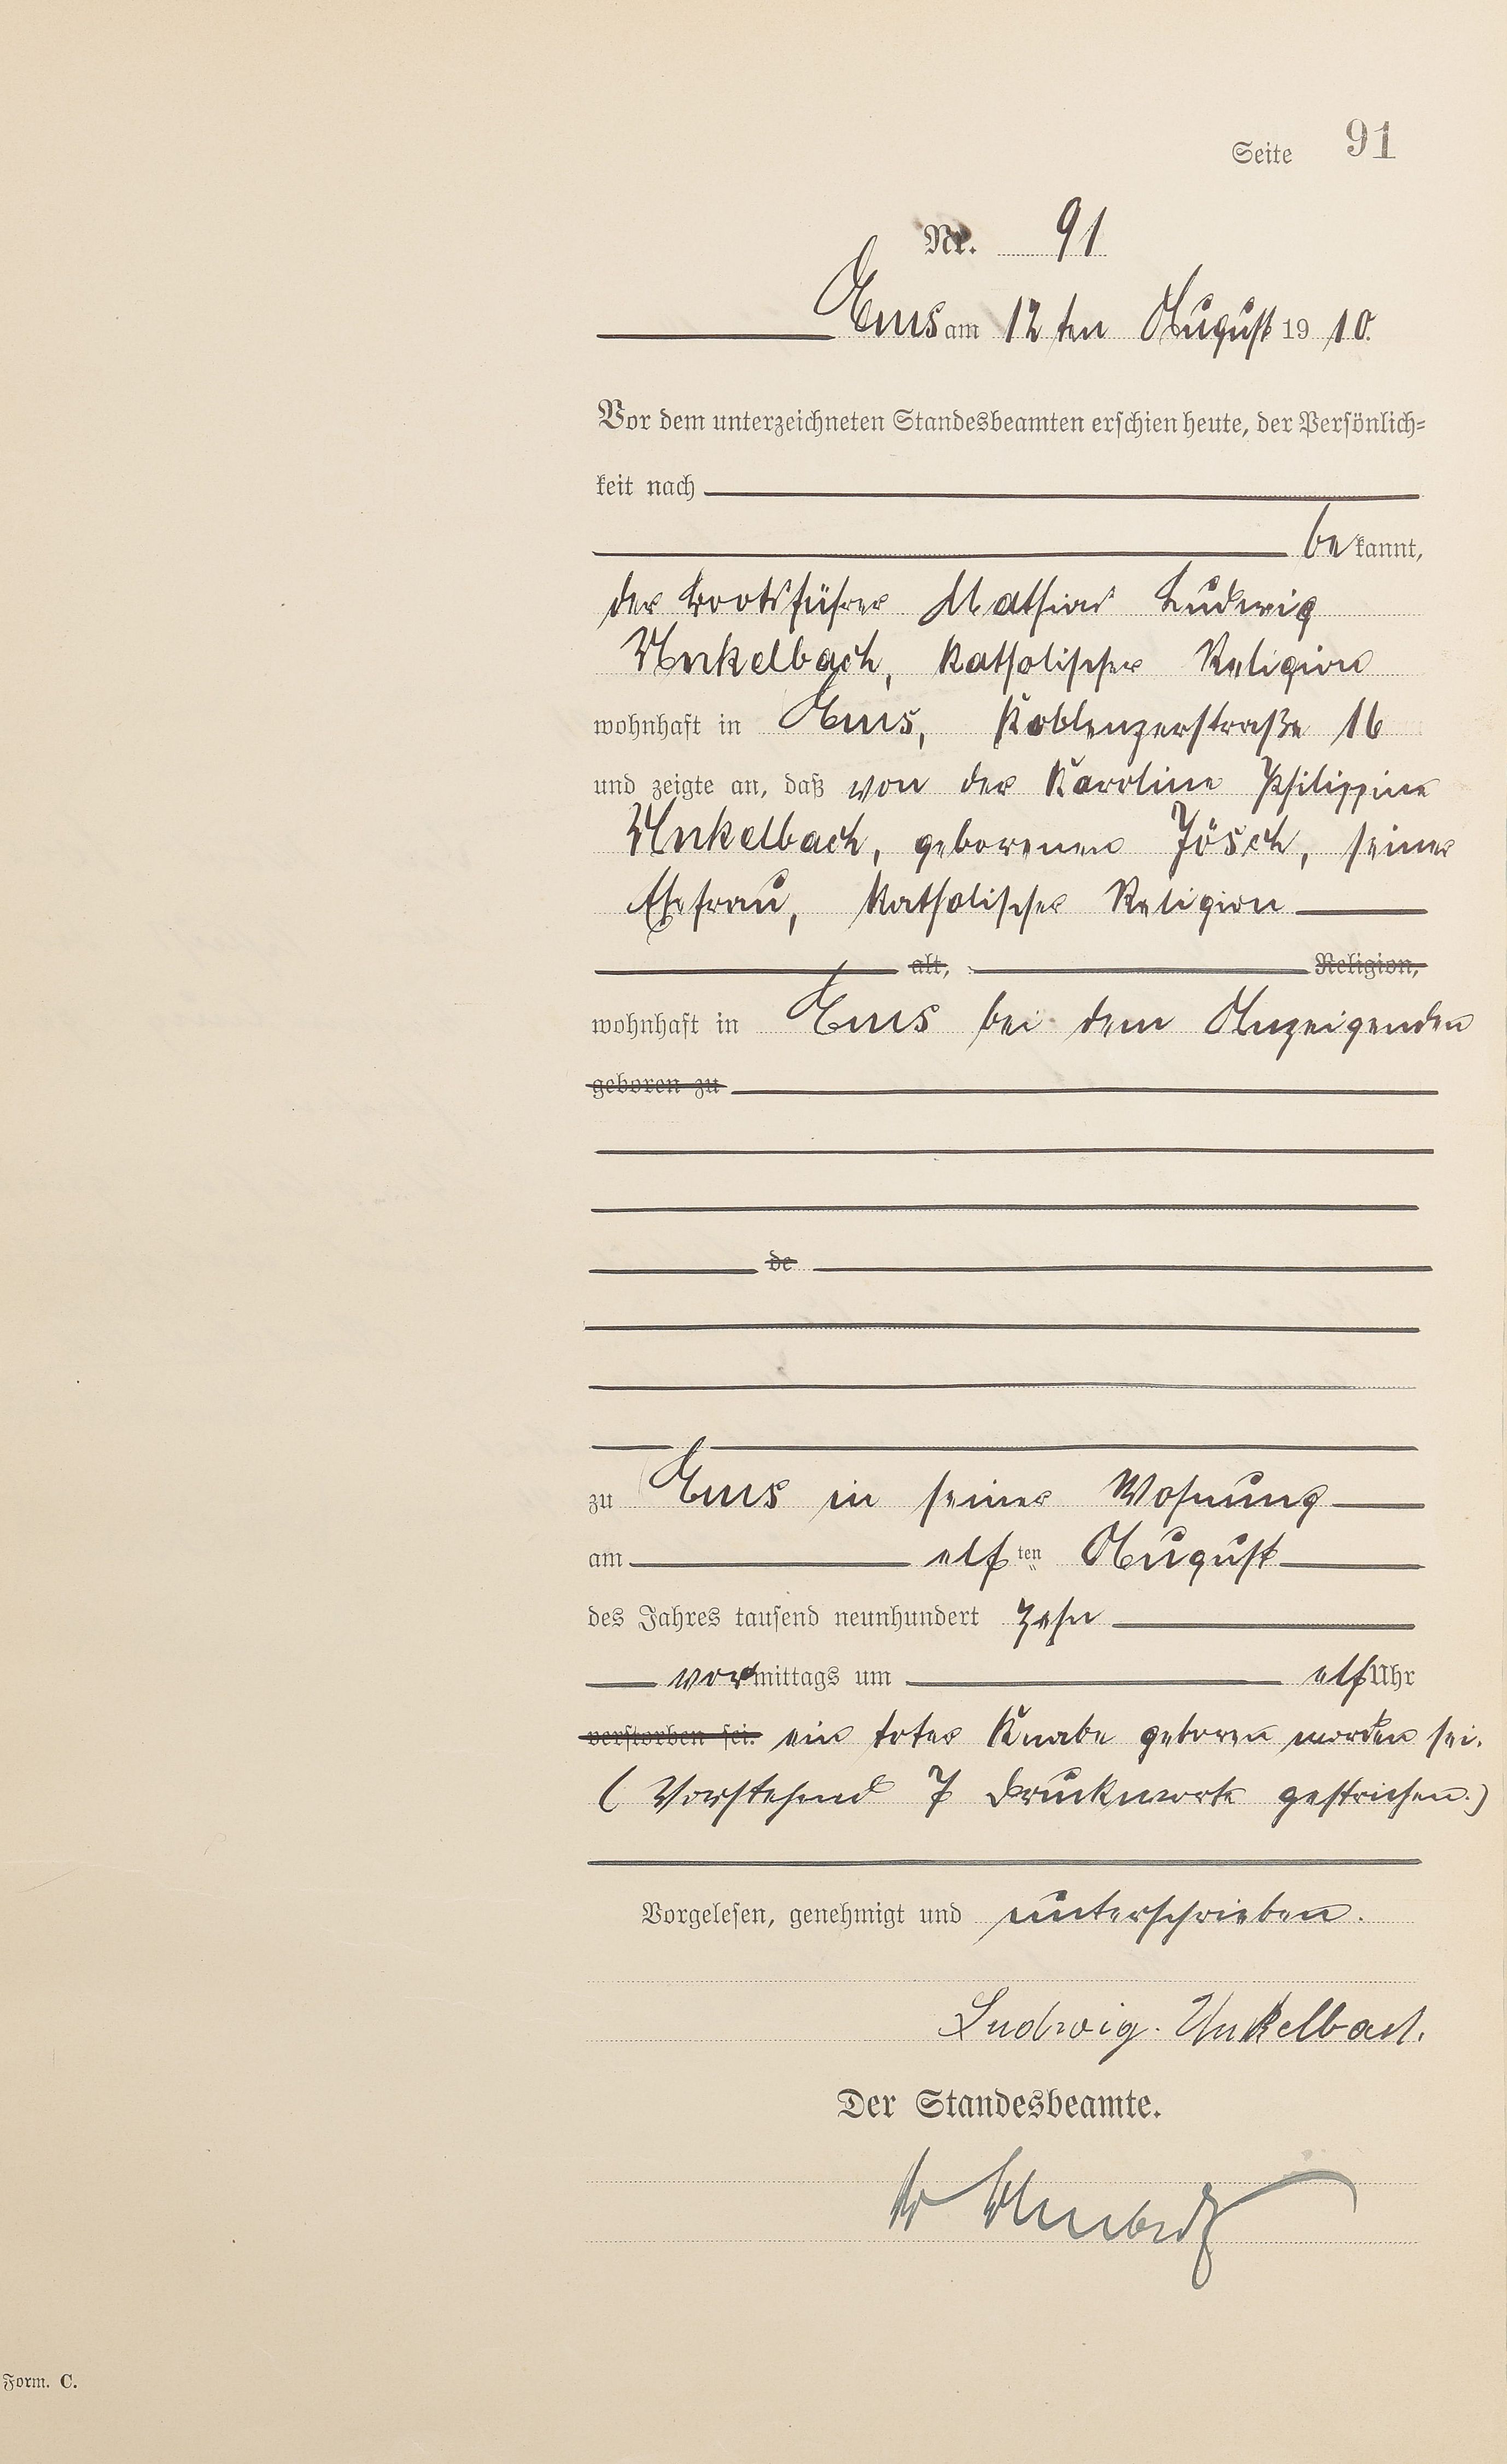 Seite 91
Nr. 91
Ems am 12ten August 1910.
Vor dem unterzeichneten Standesbeamten erschien heute, der Persönlich-
keit nach
bekannt,
der Bootsführer Mathias Ludwig
Unkelbach, katholischer Religion
wohnhaft in Ems, Koblenzerstraße 16
und zeigte an, daß von der Karoline Philippine
Unkelbach, geborenen Jösch, seiner
Ehefrau, katholischer Religion
alt, Religion,
wohnhaft in Ems bei dem Anzeigenden
geboren zu
de
zu Ems in seiner Wohnung
am elf ten August
des Jahres tausend neunhundert zehn
vormittags um elf Uhr
verstorben sei. ein toter Knabe geboren worden sei.
(Vorstehend 7 Druckworte gestrichen.)
Vorgelesen, genehmigt und unterschrieben.
Ludwig Unkelbach.
Der Standesbeamte.
Form. C.